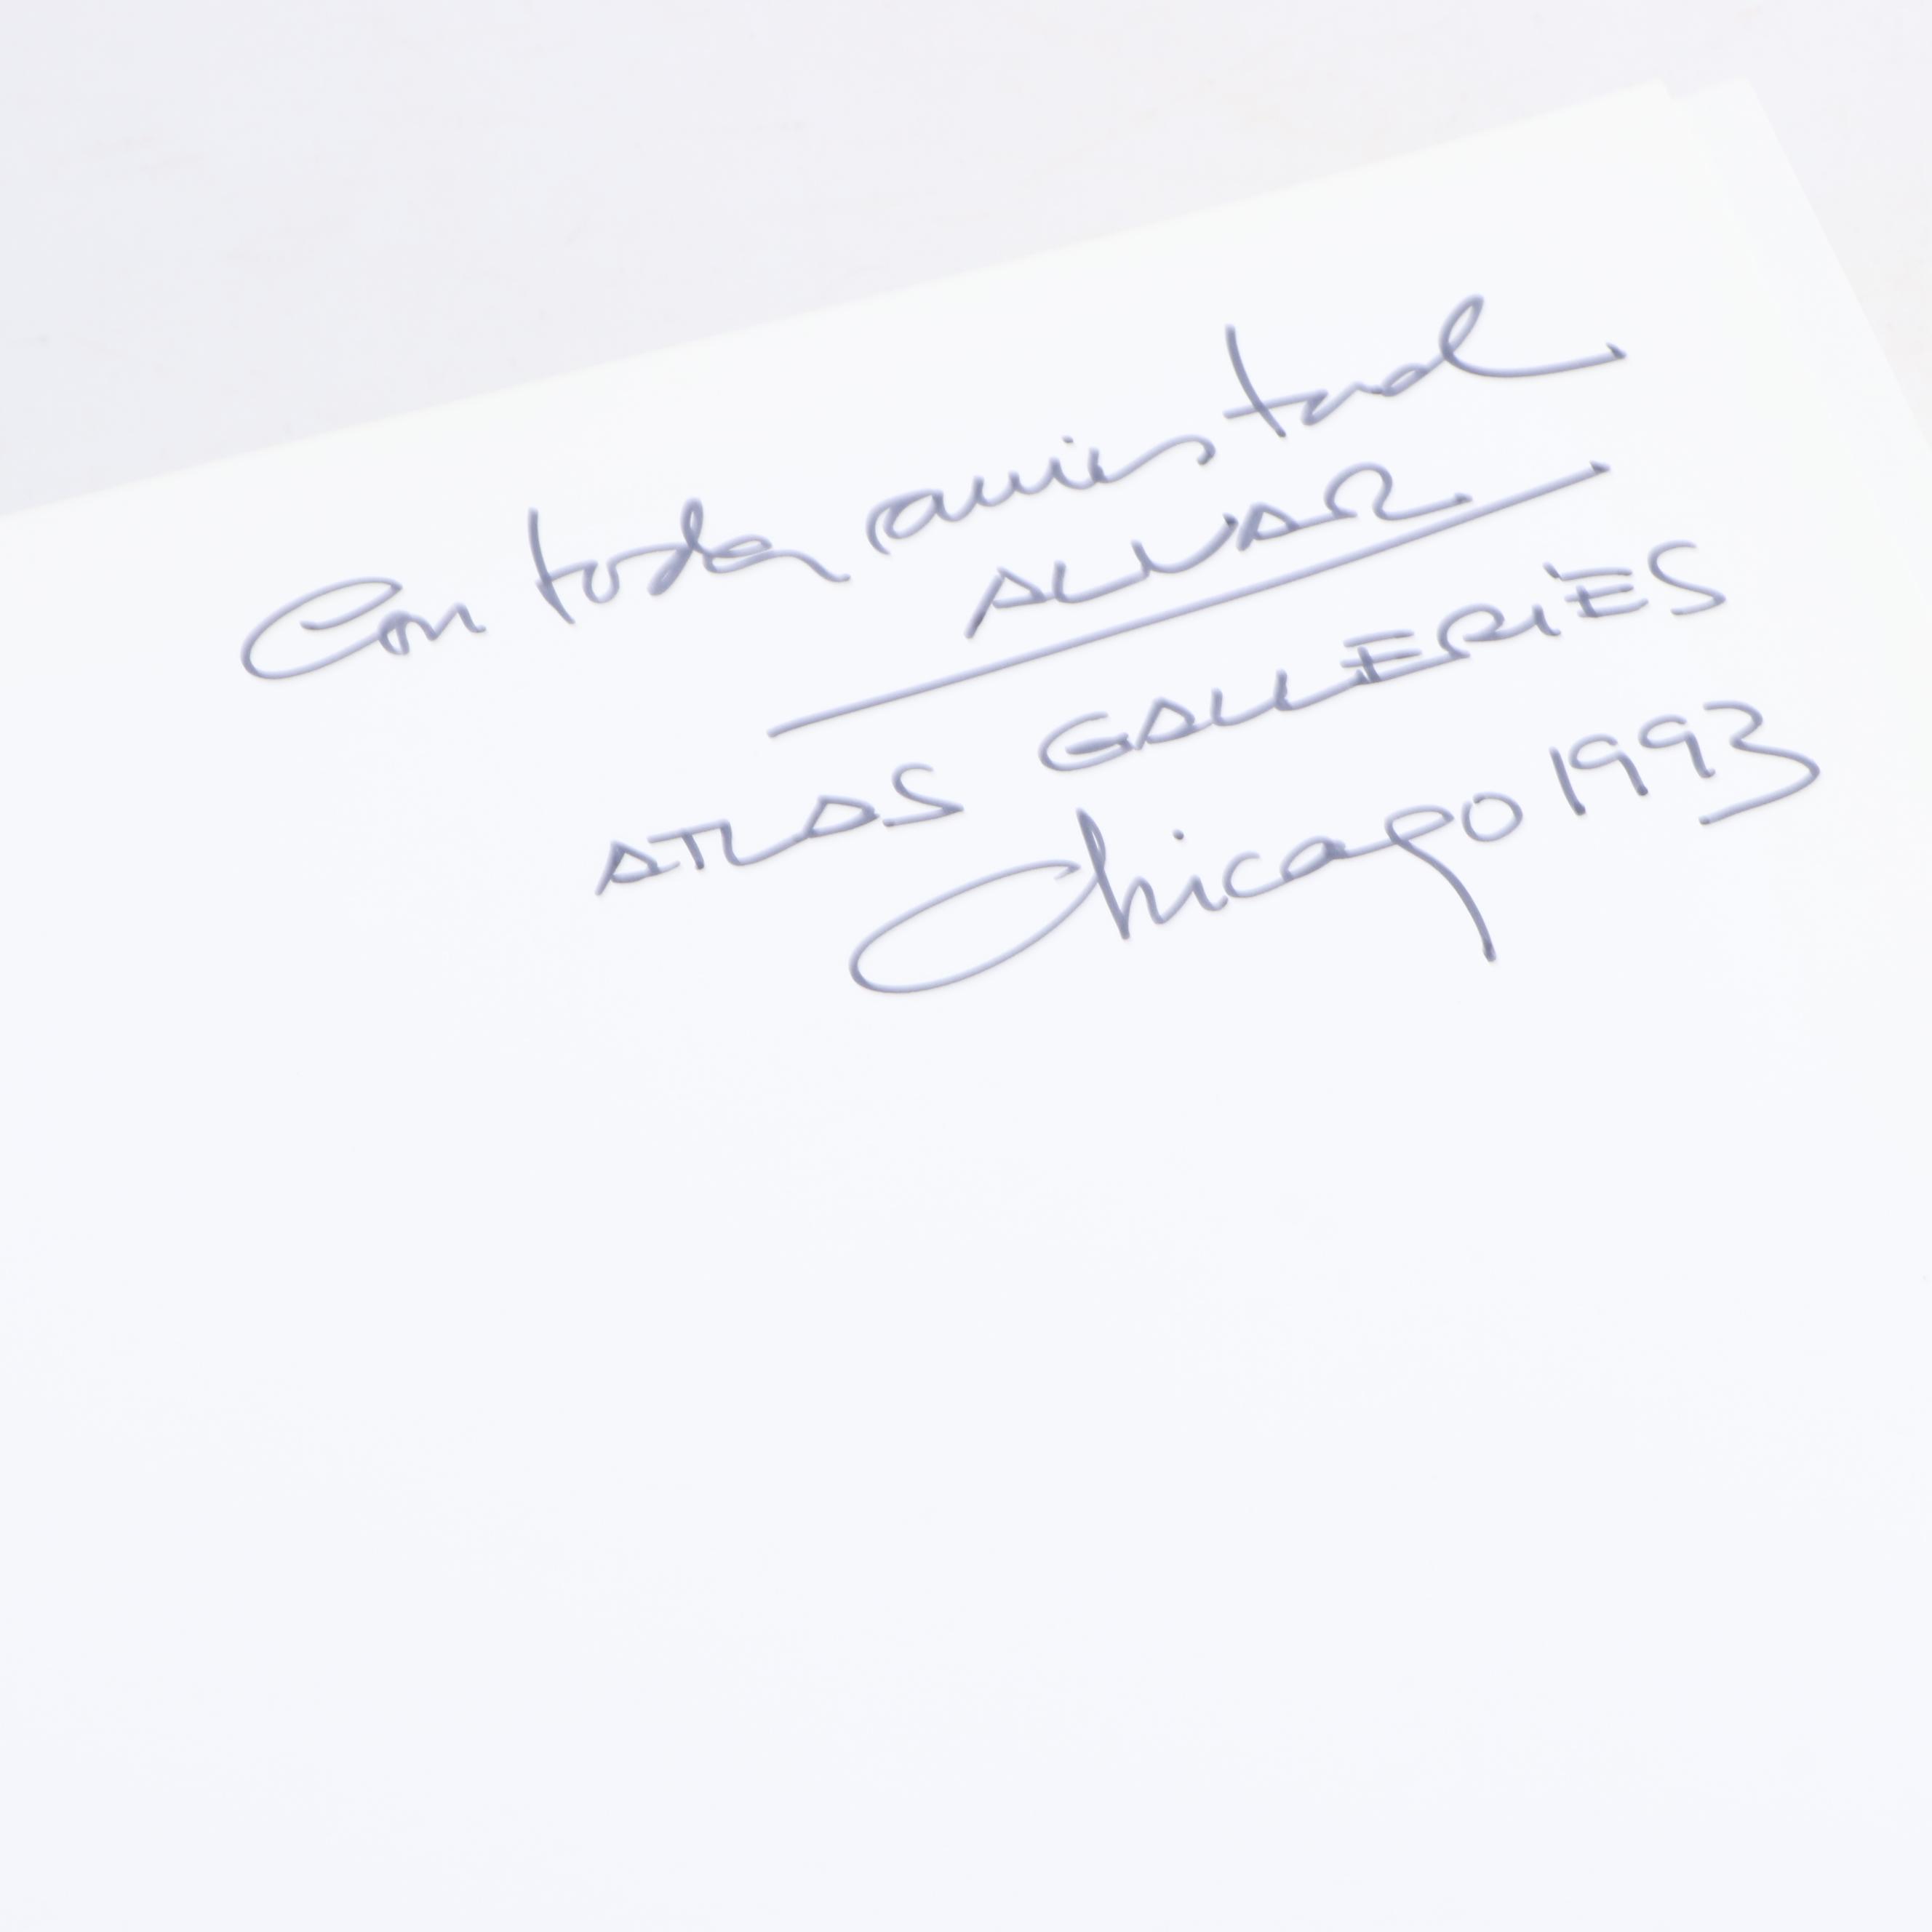 Con toda amistad
ALVAR
ATLAS GALLERIES
Chicago 1993